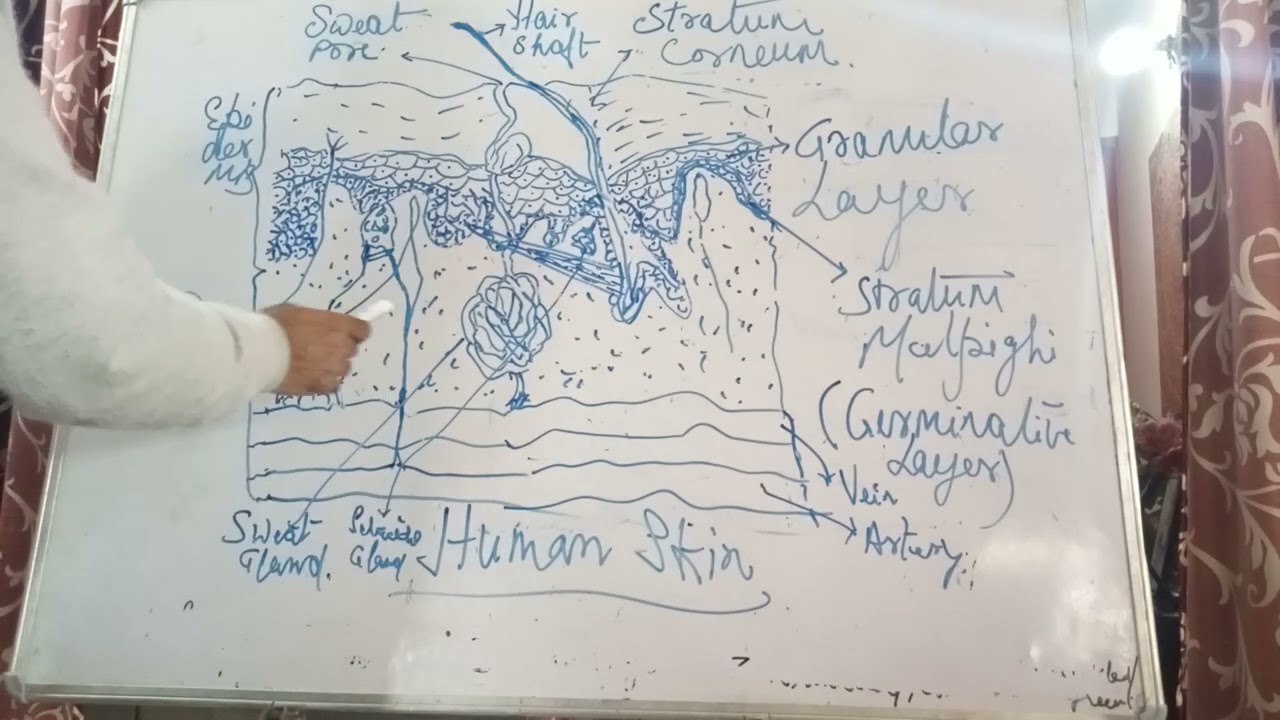 Sweat
Pore
Hair
Shaft
Stratum
Corneum.
Epi
der
Mis
Granular
Layer
Stratum
Malpighi
(Germinative
Layer)
Vein
Artery
Sweat
Gland.
Gland
Human Skin